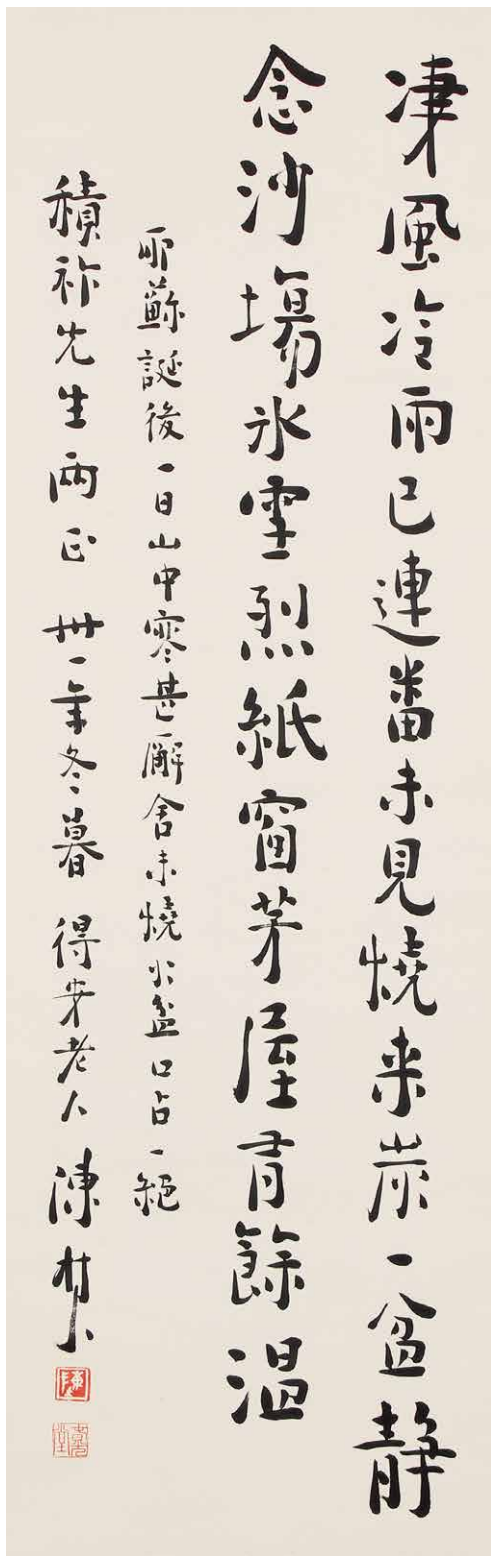 凄風冷雨已連番未見燒来炭一盆靜
念沙場氷雪烈紙窗茅屋有餘溫
耶蘇誕後一日山中寒甚廨舍未燒火盆口占一絕
積祚先生兩正 卅一年冬暮 得安老人 陳樹人
陳